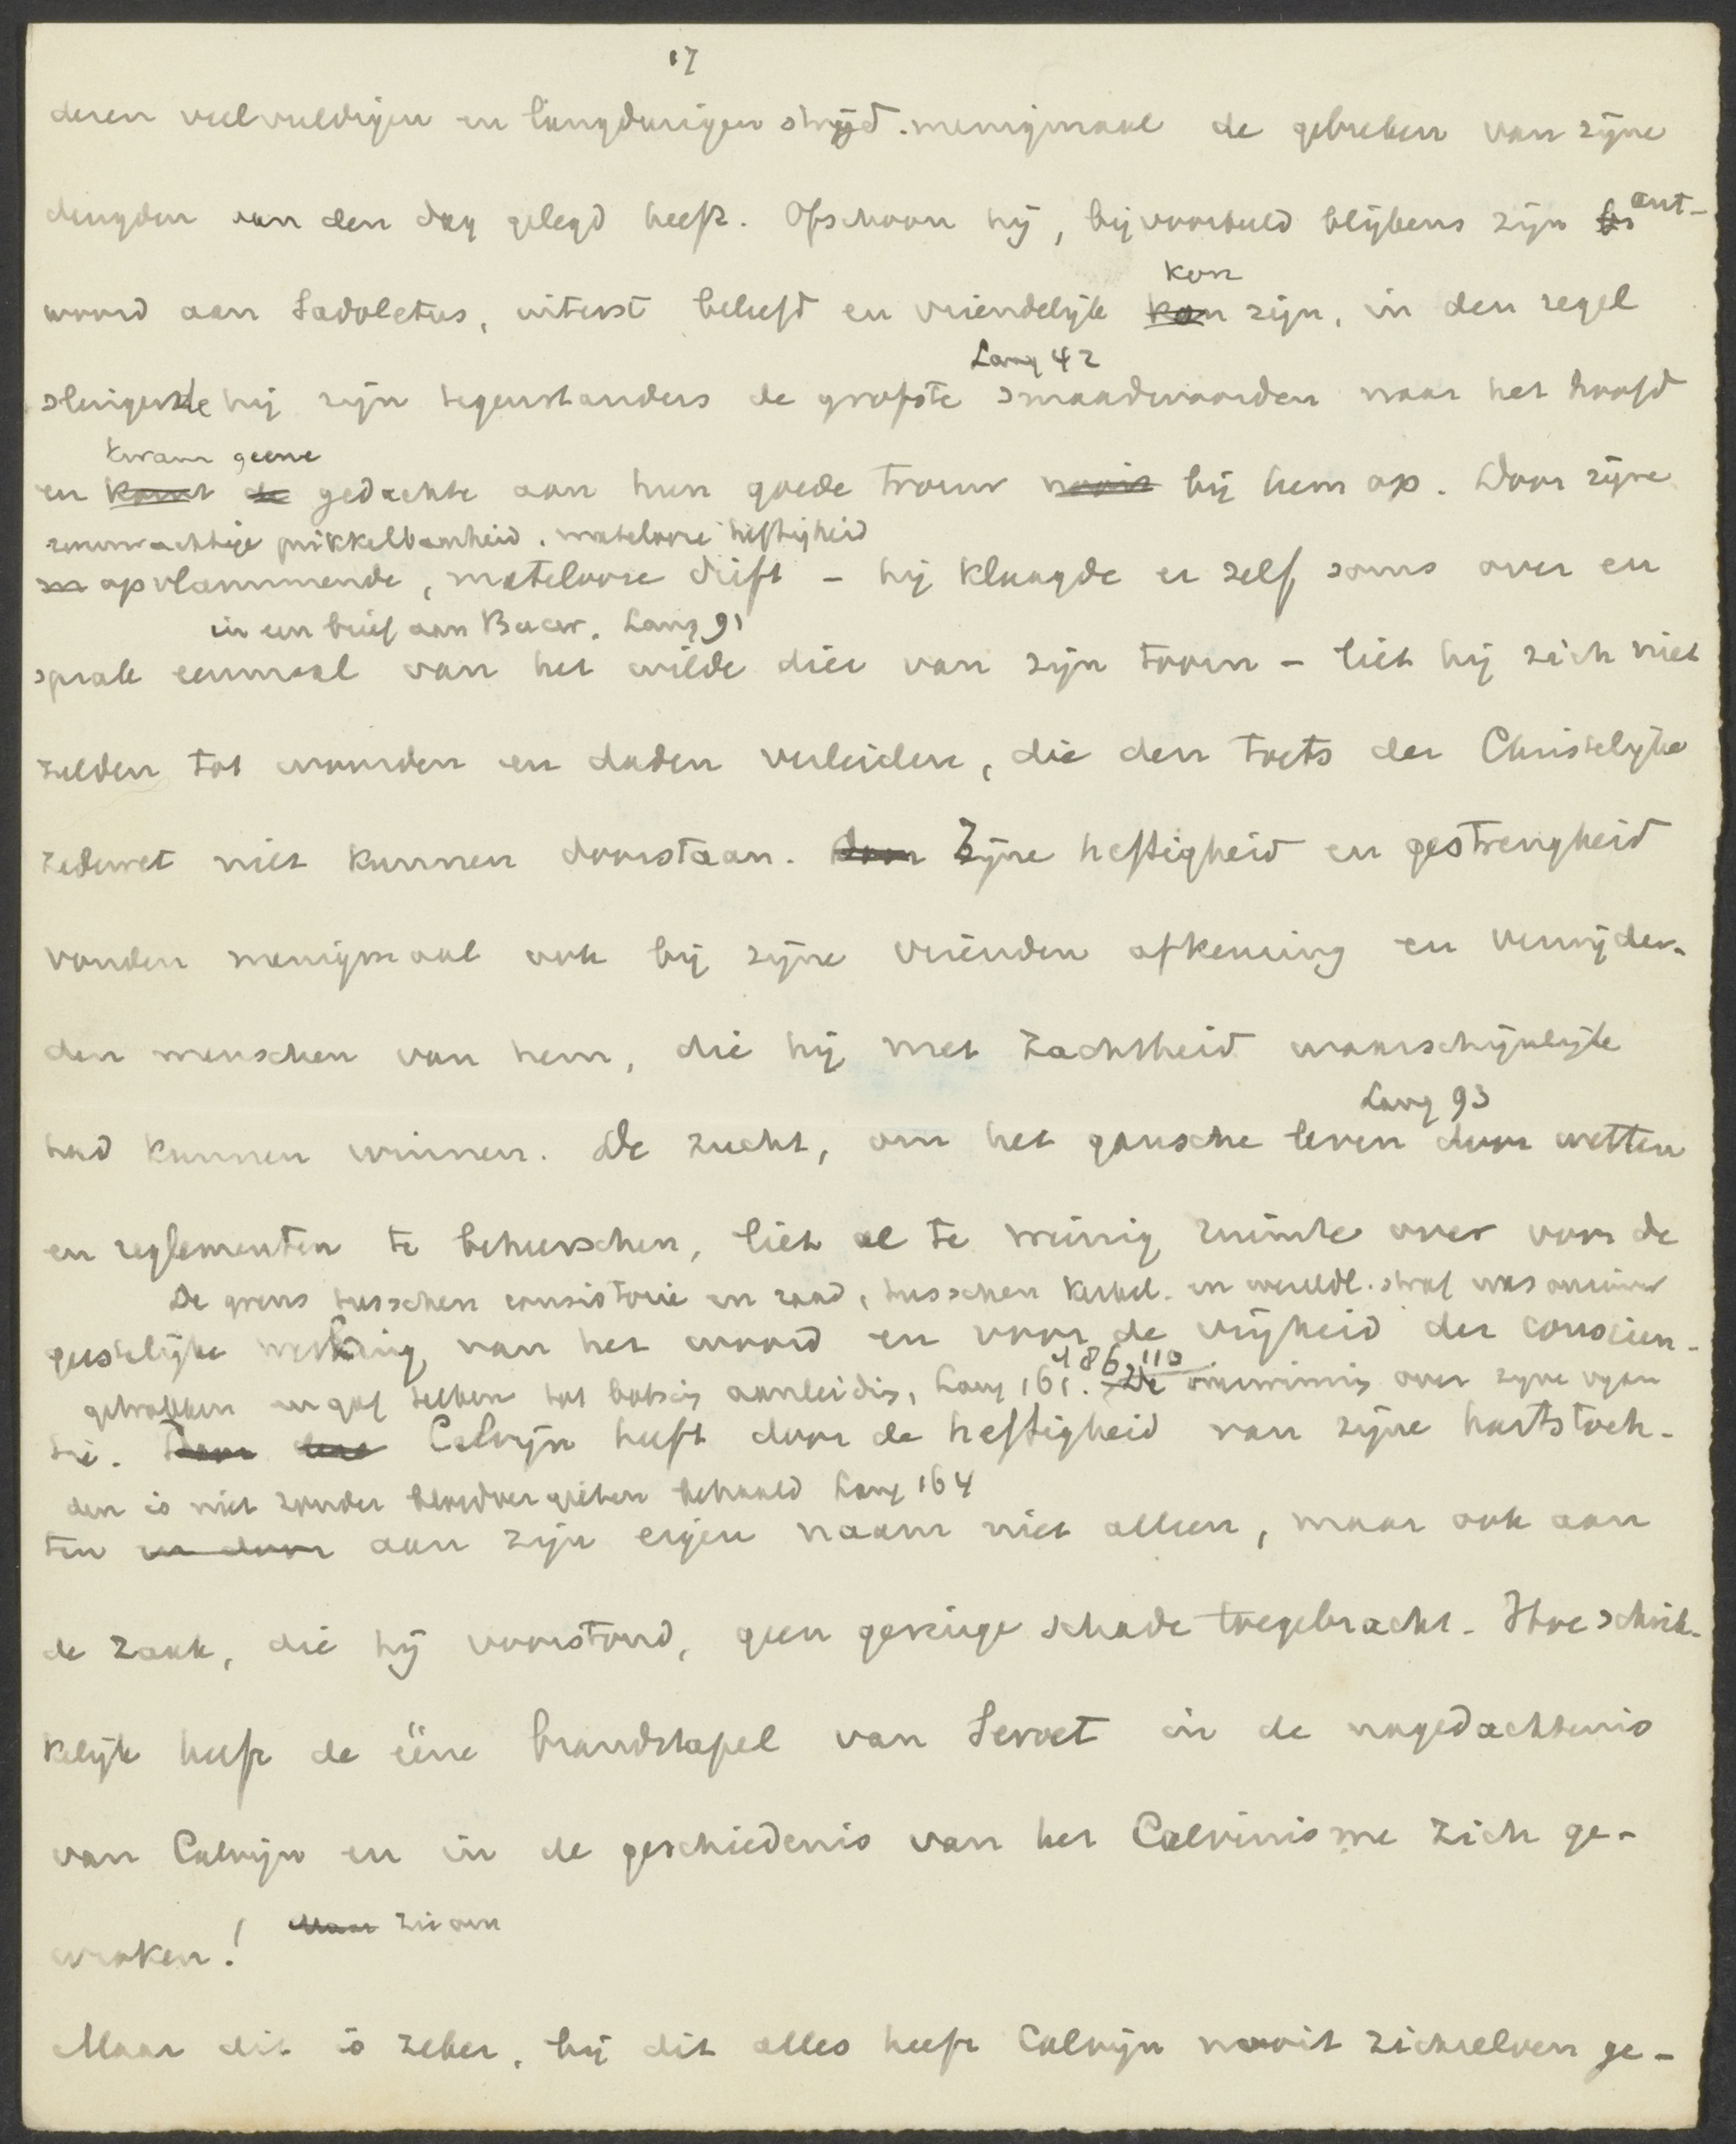 17
deren veelvuldigen en langdurigen strijd menigmaal de gebreken van zijne
deugden aan den dag gelegd heeft. Ofschoon hij, bijvoorbeeld blijkens zijn ant-
kon
woord aan Sadoletus, uiterst beleefd en vriendelijk kan zijn, in den regel
Lang 42
slingerde hij zijn tegenstanders de grofste smaadwoorden naar het hoofd
kwam geene
en komt de gedachte aan hun goede trouw nooit bij hem op. Door zijne
zenuwachtige prikkelbaarheid, matelooze heftigheid
opvlammende, matelooze drift - hij klaagde er zelf soms over en
in een brief aan Bucer. Lang 91
sprak eenmaal van het wilde dier van zijn toorn - liet hij zich niet
zelden tot woorden en daden verleiden, die den toets der Christelijke
zedewet niet kunnen doorstaan. Door Zijne heftigheid en gestrengheid
vonden menigmaal ook bij zijne vrienden afkeuring en verwijder-
den menschen van hem, die hij met zachtheid waarschijnlijk
Lang 93
had kunnen winnen. De zucht, om het gansche leven door wetten
en reglementen te beheerschen, liet al te weinig ruimte over voor de
De grens tusschen consistorie en raad, tusschen kerkel. en wereldl. straf was
geestelijke werking van het woord en voor de vrijheid der conscien-
186, 110
getrokken en gaf telkens tot botsing aanleiding, Lang 161. De overwinning over zijne vijan
tie. Door deze Calvijn heeft door de heftigheid van zijne hartstoch-
den is niet zonder bloedvergieten behaald Lang 164
ten en door aan zijn eigen naam niet alleen, maar ook aan
de zaak, die hij voorstond, geen geringe schade toegebracht. Hoe schrik-
kelijk heeft de ééne brandstapel van Servet in de nagedachtenis
van Calvijn en in de geschiedenis van het Calvinisme zich ge-
wroken! Maar zie om
Maar dit is zeker, bij dit alles heeft Calvijn nooit zichzelven ge-